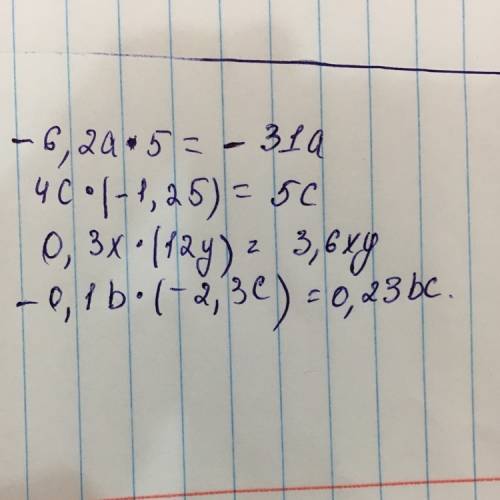 -6,2a·5 = -31a
4c·(-1,25) = 5c
0,3x·(12y) = 3,6xy
-0,1b·(-2,3c) = 0,23bc.